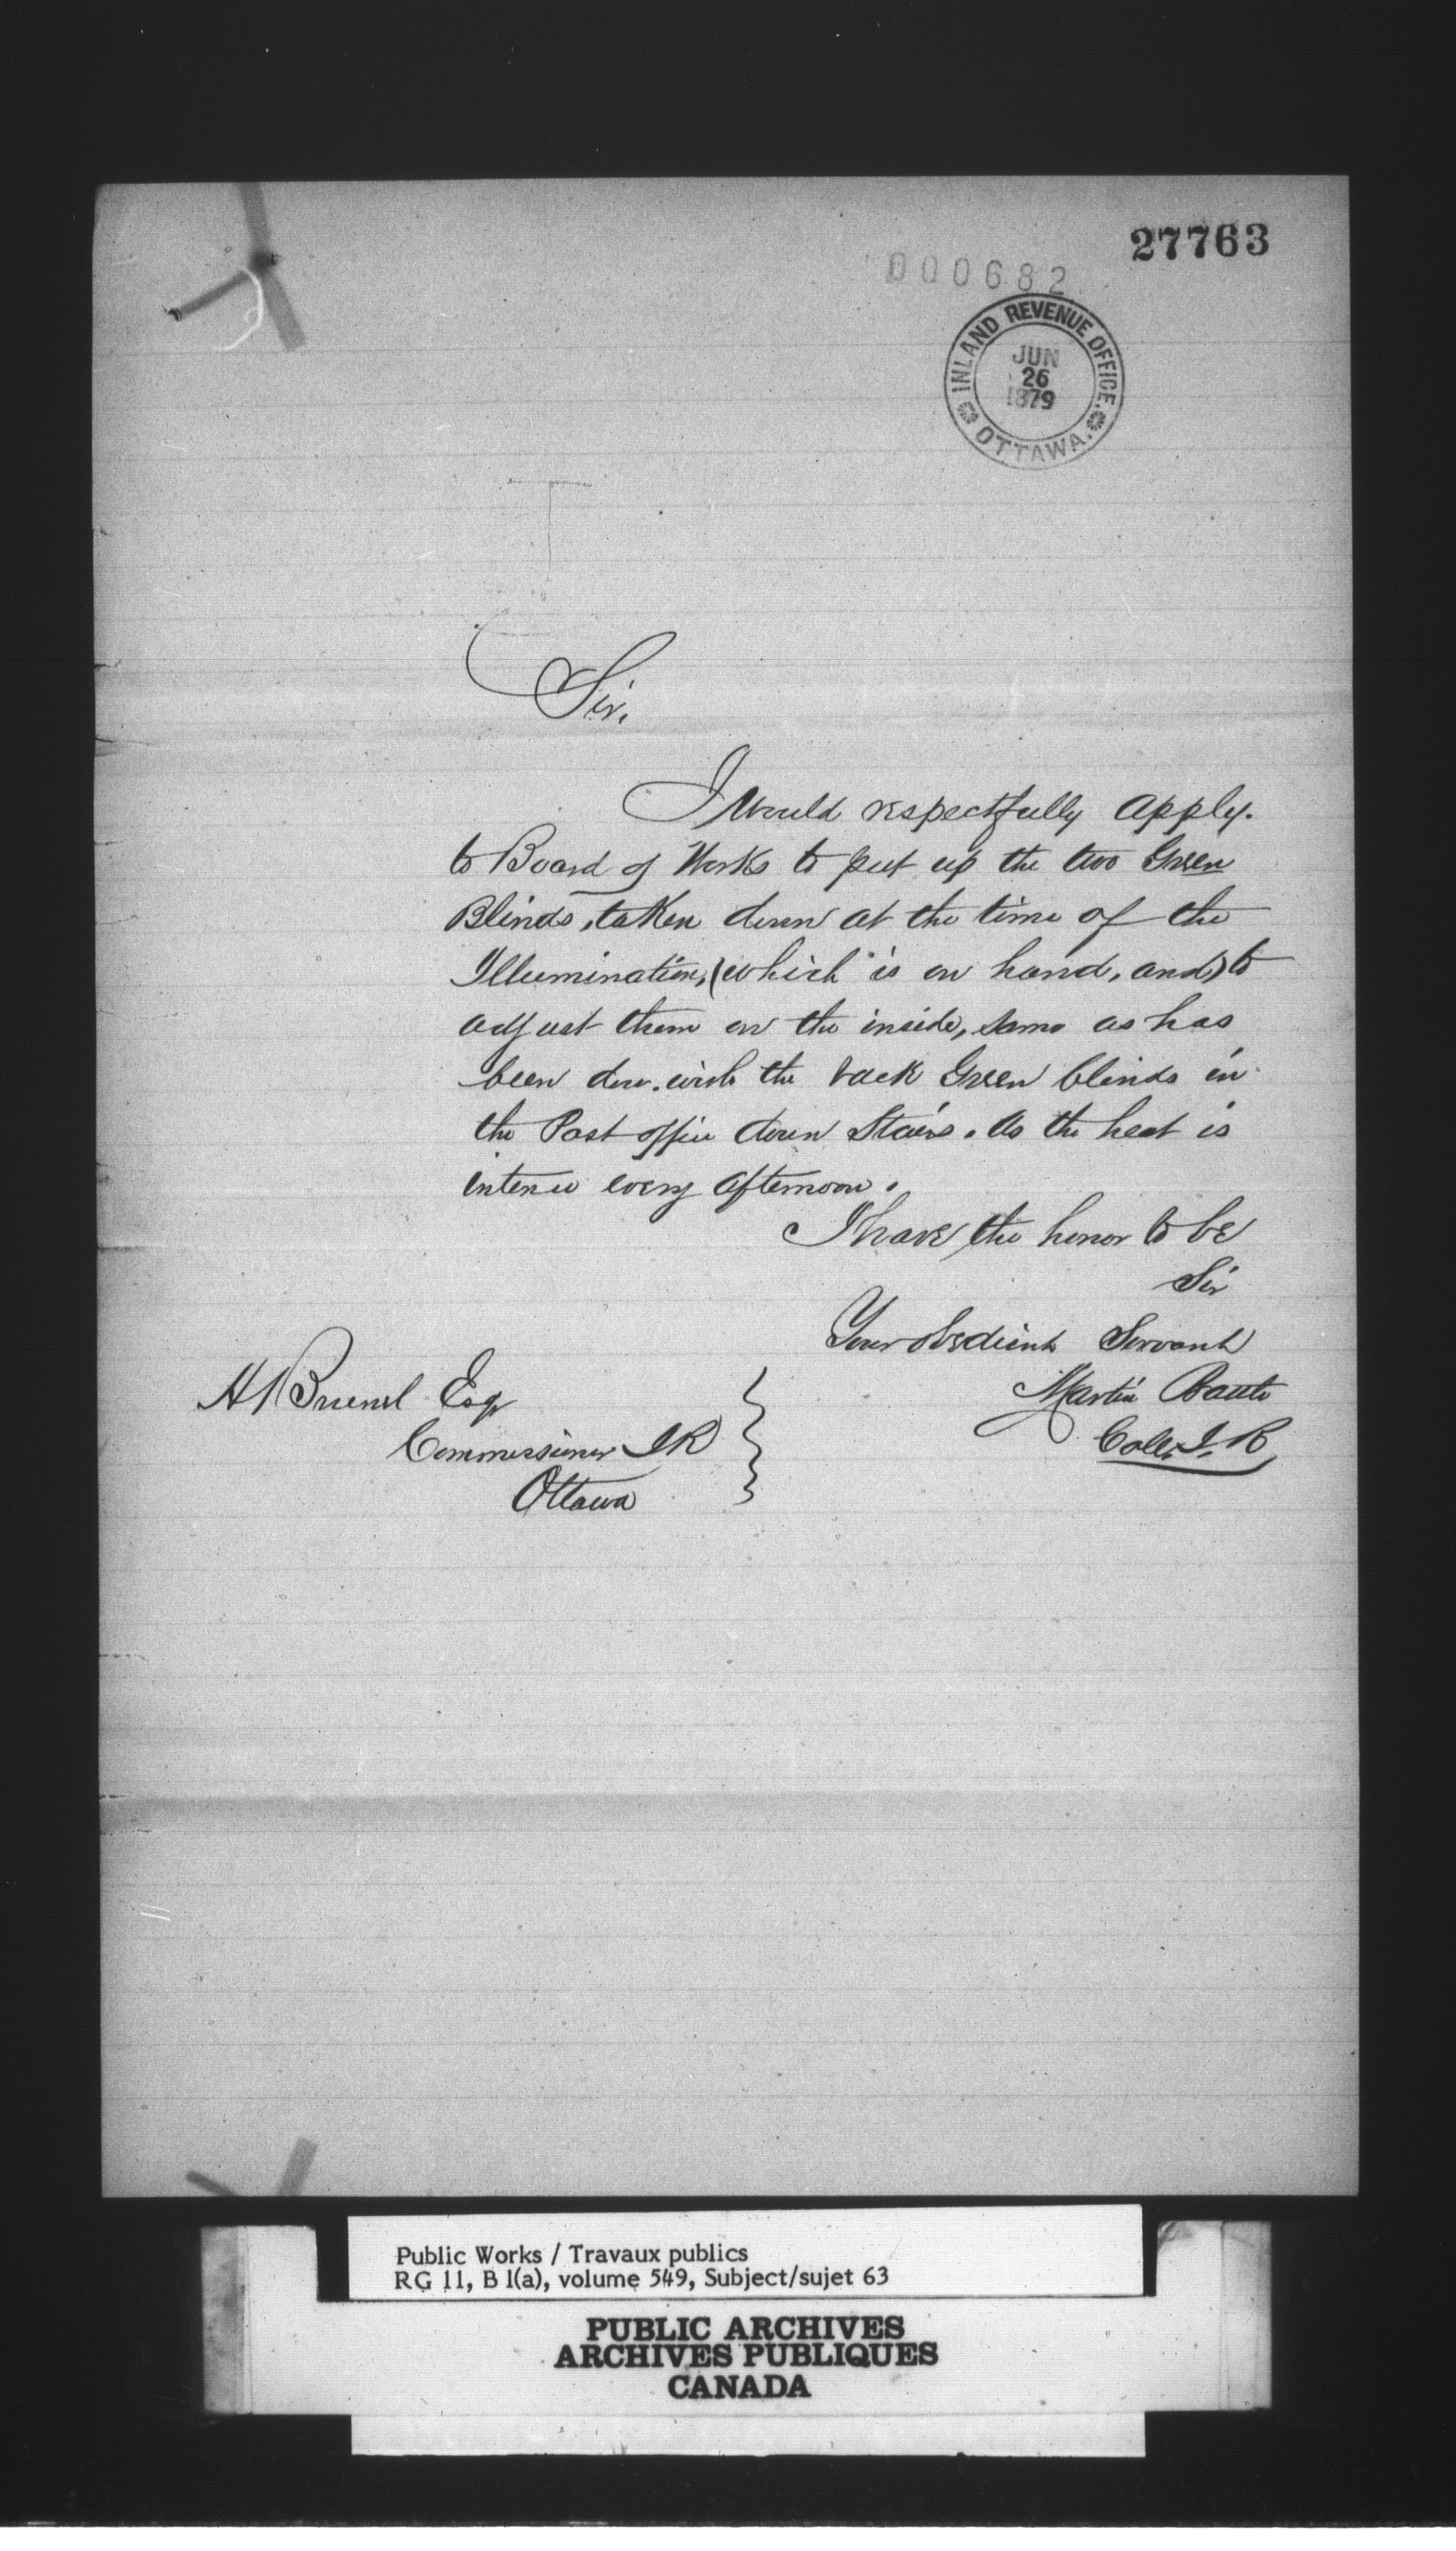 27763
000682
INLAND REVENUE OFFICE.
JUN
26
1879
OTTAWA.
Sir,
I Would respectfully apply.
to Board of Works to put up the two Green
Blinds, taken down at the time of the
Illumination, (which is on hand, and) to
adjust them on the inside, same as has
been done with the back Green blinds in
the Post office down Stairs. As the heat is
intense every afternoon.
I have the honor to be
Sir
Your obedient Servant
Martin
Coll. I. R
A Brunel Esqr
Commissioner IR
Ottawa
Public Works / Travaux publics
RG 11, B 1(a), volume 549, Subject/sujet 63
PUBLIC ARCHIVES
ARCHIVES PUBLIQUES
CANADA